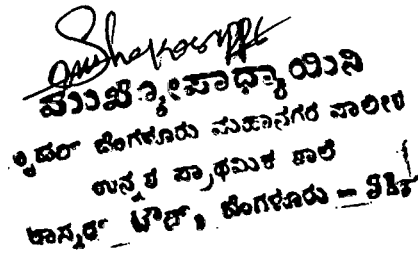 ಮುಖ್ಯೋಪಾಧ್ಯಾಯಿನಿ
ಬೃಹತ್ ಬೆಂಗಳೂರು ಮಹಾನಗರ ಪಾಲಿಕೆ
ಉನ್ನತ ಪ್ರಾಥಮಿಕ ಶಾಲೆ
ಟೌನ್, ಬೆಂಗಳೂರು -